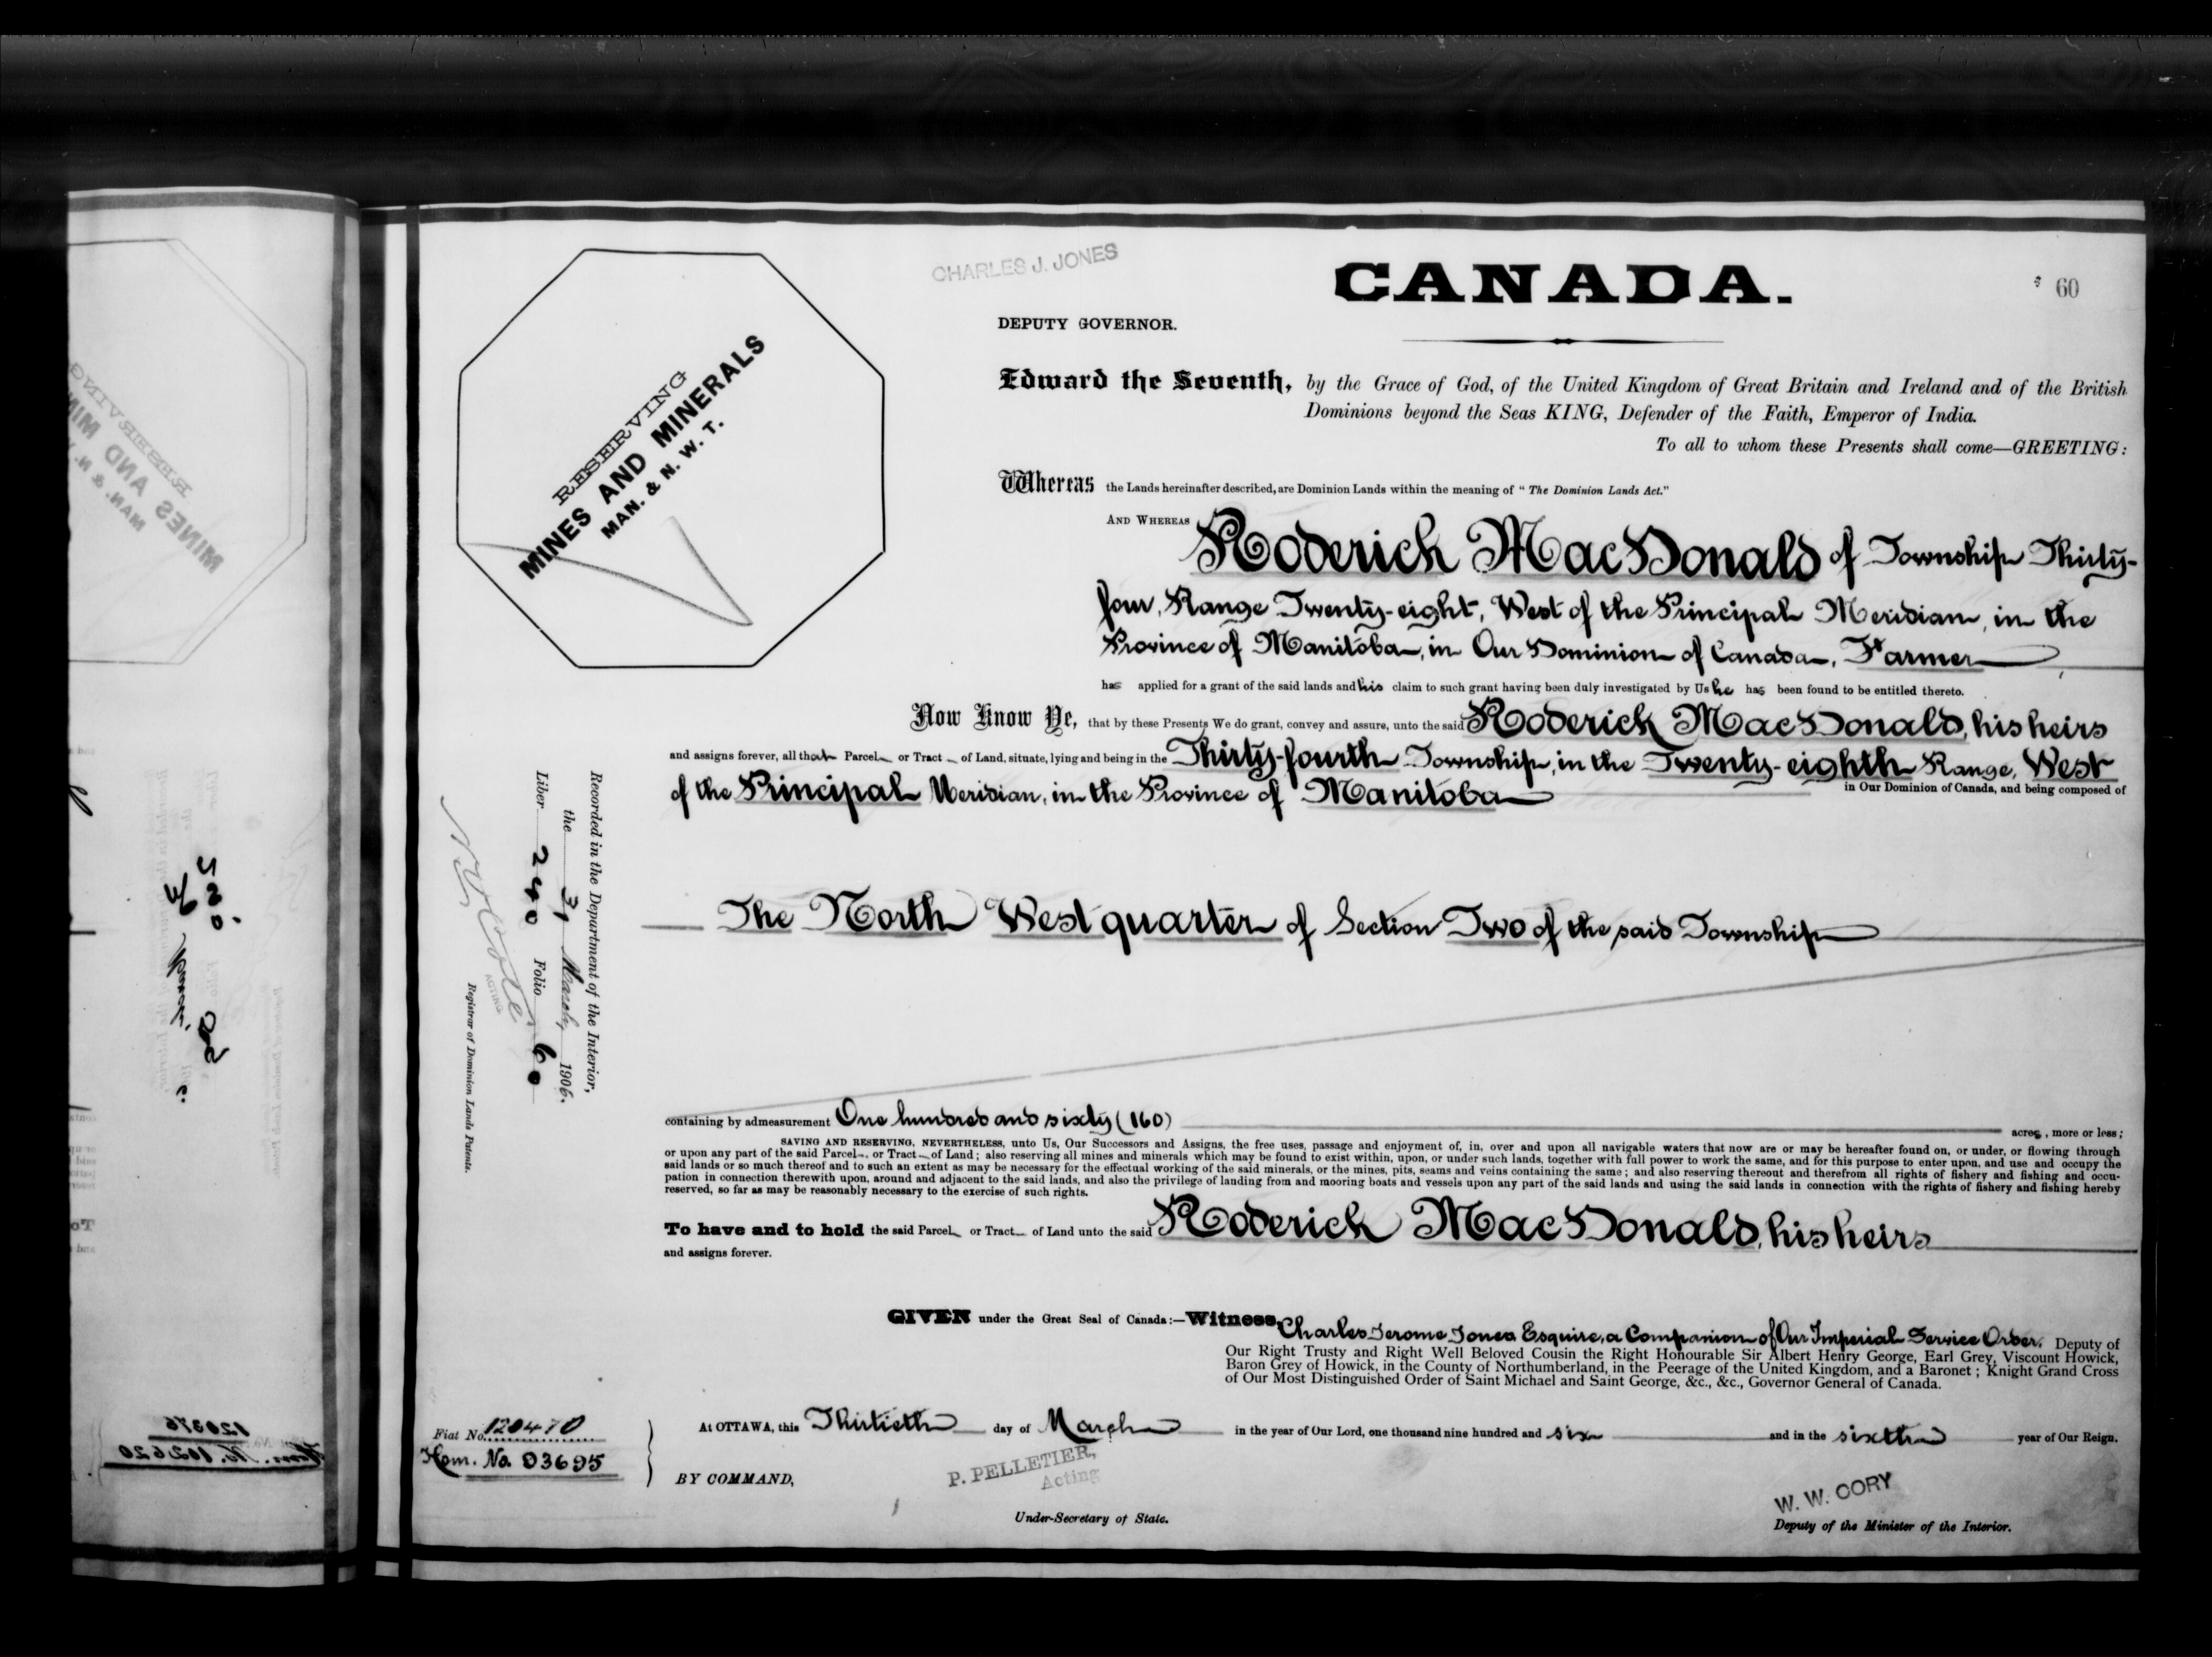 CHARLES J. JONES
CANADA.
60
DEPUTY GOVERNOR.
RESERVING
MINES AND MINERALS
MAN. & N. W. T.
Edward the Seventh, by the Grace of God, of the United Kingdom of Great Britain and Ireland and of the British
Dominions beyond the Seas KING, Defender of the Faith, Emperor of India.
To all to whom these Presents shall come—GREETING:
Whereas the Lands hereinafter described, are Dominion Lands within the meaning of "The Dominion Lands Act."
AND WHEREAS Roderick MacDonald of Township Thirty-
four, Range Twenty-eight, West of the Principal Meridian, in the
Province of Manitoba, in Our Dominion of Canada, Farmer
has applied for a grant of the said lands and his claim to such grant having been duly investigated by Us he has been found to be entitled thereto.
Now Know Ye, that by these Presents We do grant, convey and assure, unto the said Roderick MacDonald, his heirs
and assigns forever, all that Parcel or Tract of Land, situate, lying and being in the Thirty-fourth Township, in the Twenty-eighth Range, West
of the Principal Meridian, in the Province of Manitoba in Our Dominion of Canada, and being composed of
The North West quarter of Section Two of the said Township
containing by admeasurement One hundred and sixty (160) acres, more or less;
SAVING AND RESERVING, NEVERTHELESS, unto Us, Our Successors and Assigns, the free uses, passage and enjoyment of, in, over and upon all navigable waters that now are or may be hereafter found on, or under, or flowing through
or upon any part of the said Parcel or Tract of Land; also reserving all mines and minerals which may be found to exist within, upon, or under such lands, together with full power to work the same, and for this purpose to enter upon, and use and occupy the
said lands or so much thereof and to such an extent as may be necessary for the effectual working of the said minerals, or the mines, pits, seams and veins containing the same; and also reserving thereout and therefrom all rights of fishery and fishing and occu-
pation in connection therewith upon, around and adjacent to the said lands, and also the privilege of landing from and mooring boats and vessels upon any part of the said lands and using the said lands in connection with the rights of fishery and fishing hereby
reserved, so far as may be reasonably necessary to the exercise of such rights.
To have and to hold the said Parcel or Tract of Land unto the said Roderick MacDonald, his heirs
and assigns forever.
GIVEN under the Great Seal of Canada:—Witness, Charles Jerome Jones Esquire, a Companion of Our Imperial Service Order, Deputy of
Our Right Trusty and Right Well Beloved Cousin the Right Honourable Sir Albert Henry George, Earl Grey, Viscount Howick,
Baron Grey of Howick, in the County of Northumberland, in the Peerage of the United Kingdom, and a Baronet; Knight Grand Cross
of Our Most Distinguished Order of Saint Michael and Saint George, &c., &c., Governor General of Canada.
At OTTAWA, this Thirtieth day of March in the year of Our Lord, one thousand nine hundred and six and in the sixth year of Our Reign.
BY COMMAND,
P. PELLETIER,
Acting
Under-Secretary of State.
W. W. CORY
Deputy of the Minister of the Interior.
Fiat No. 120470
Hom. No. 93695
Recorded in the Department of the Interior,
the 31 March, 1906.
Liber 240 Folio 60
ACTING
Registrar of Dominion Lands Patents.